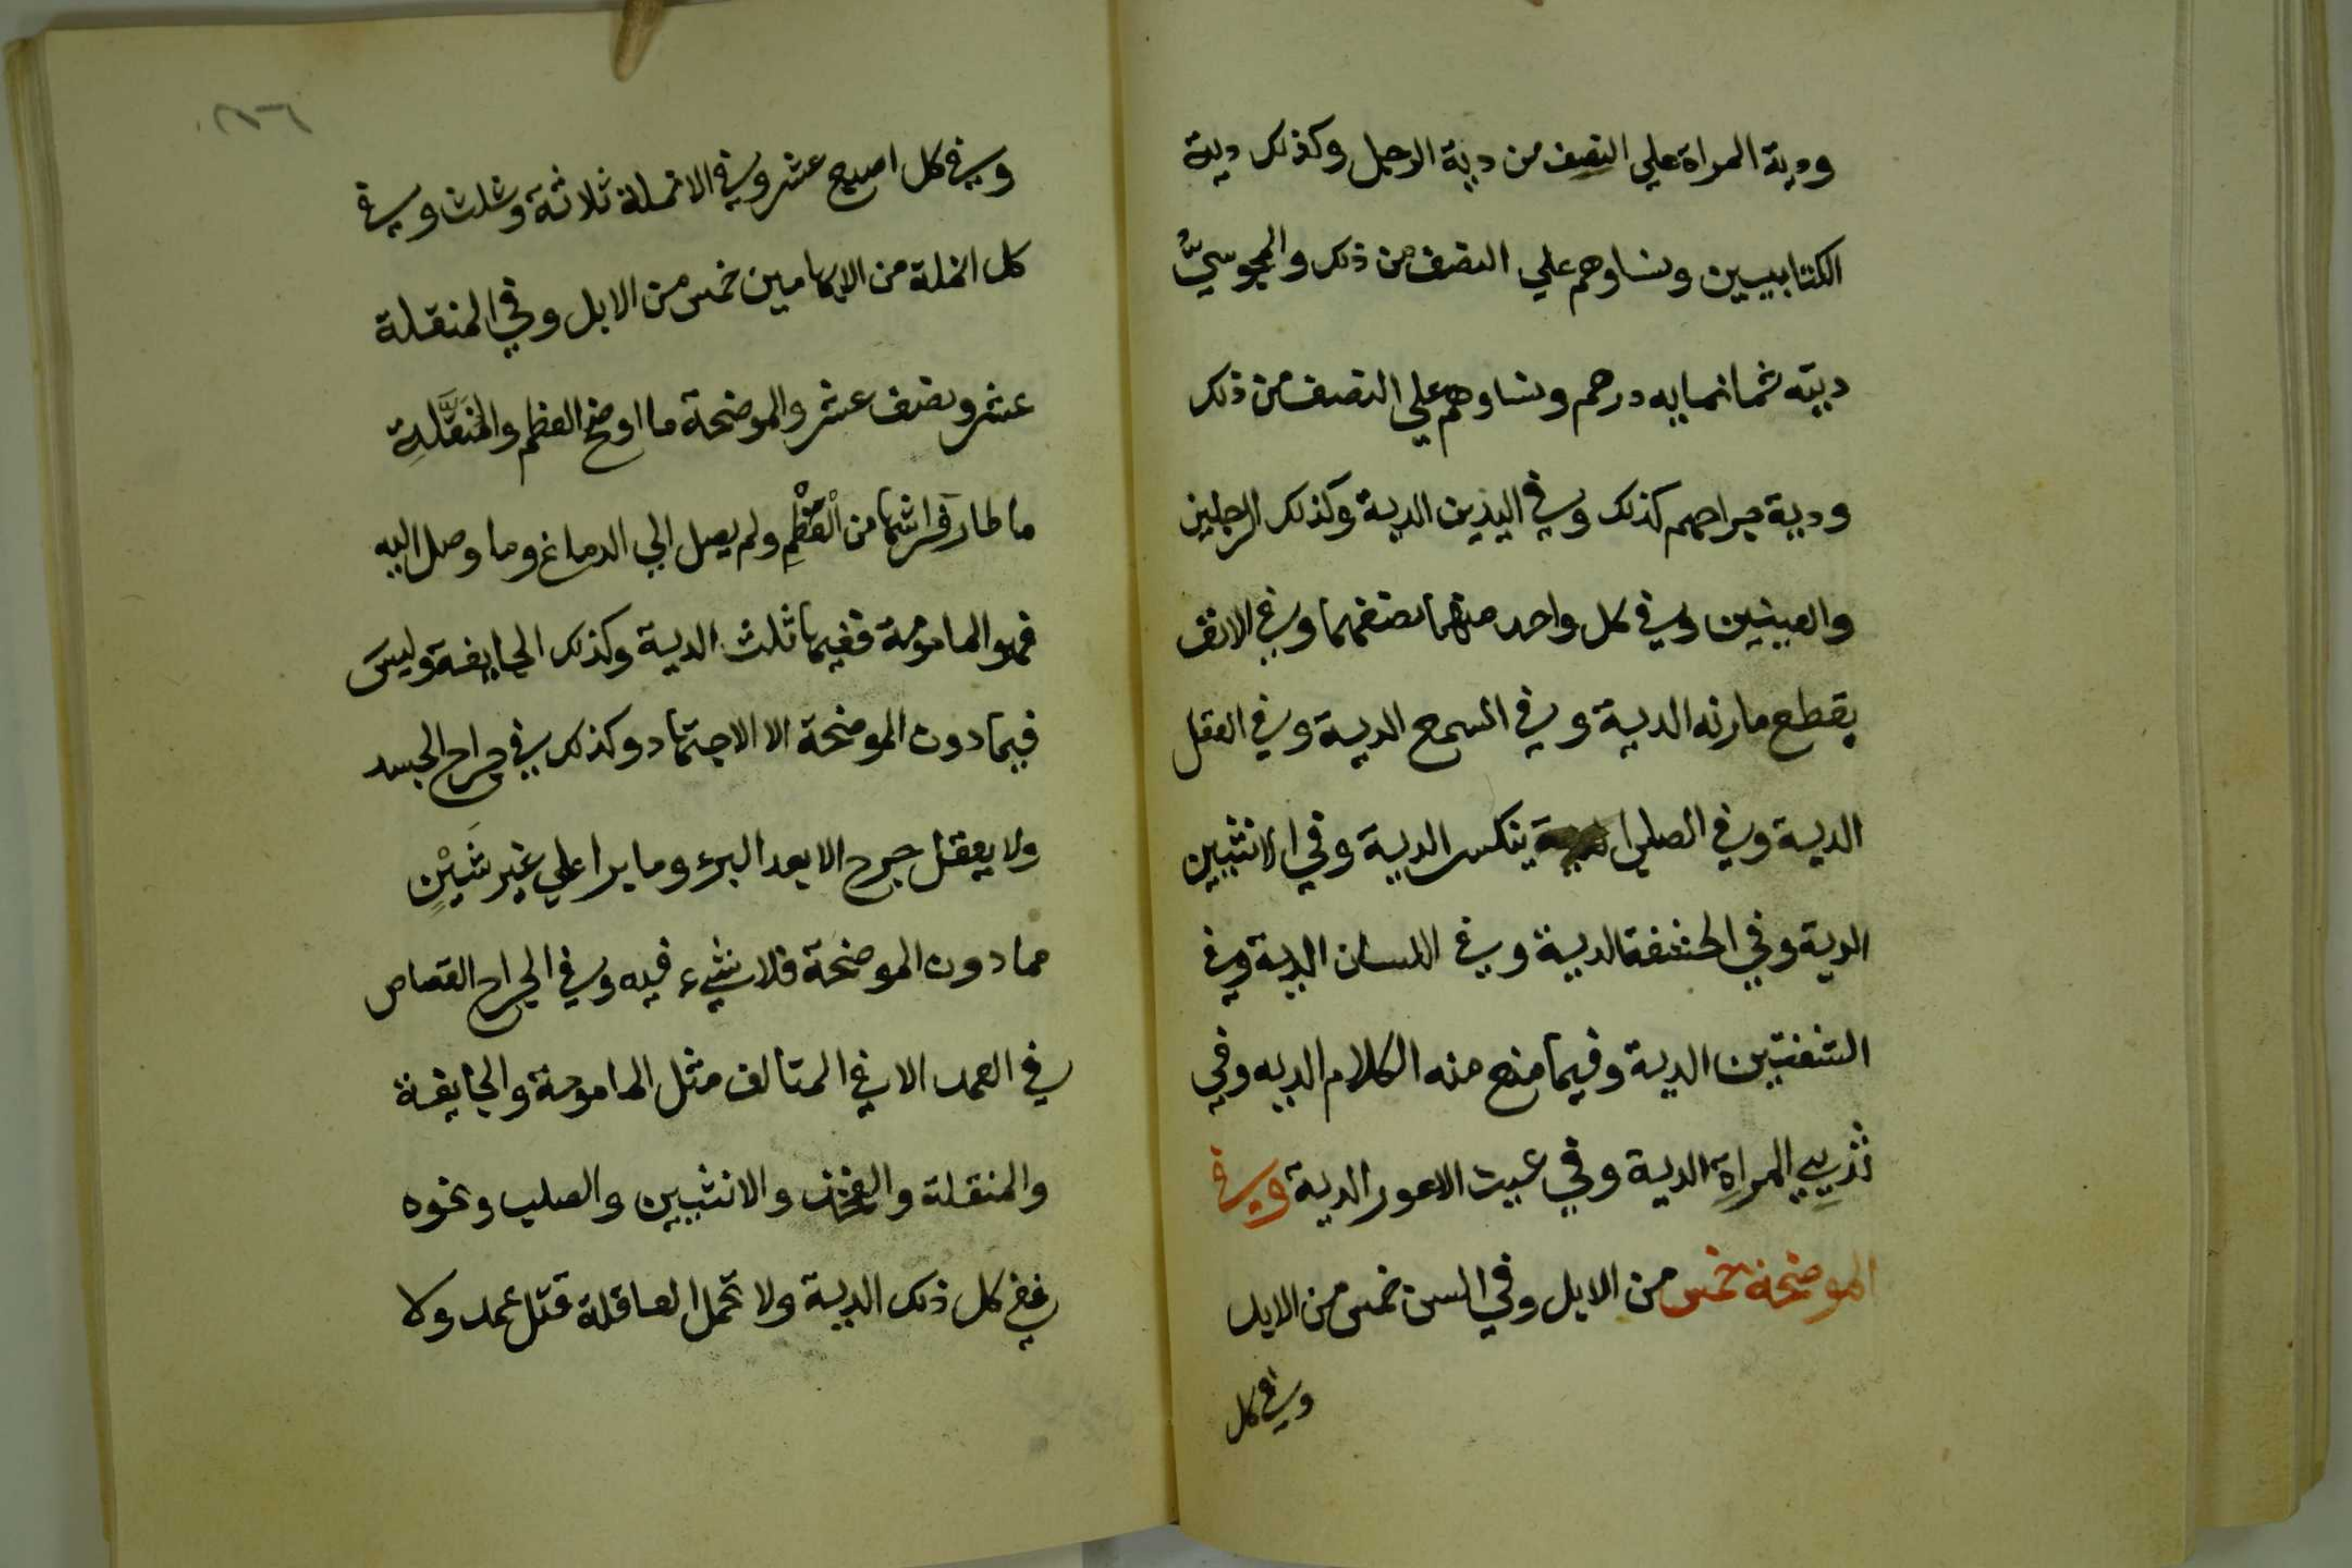 ودية المراة علي النصف من دية الرجل وكذلك دية
الكتابيين ونساوهم علي النصف من ذلك والمجوسيُّ
ديته ثمانمايه درهم ونساوهم علي النصف من ذلك
ودية جراحهم كذلك وفي اليدين الدية وكذلك الرجلين
والعينين وفي كل واحد منهما نصفهما وفي الانف
يقطع مارنه الدية وفي السمع الدية وفي العقل
الدية وفي الصلب ينكسر الدية وفي الانثيين
الدية وفي الحشفة الدية وفي اللسان الدية وفي
الشفتين الدية وفيما منع منه الكلام الديه وفي
ثديي المراةِ الدية وفي عين الاعور الدية وفي
الموضحة خمس من الابل وفي السن خمس من الابل
وفي كل
٢٨٦
وفي كل اصبع عشر وفي الانملة ثلاثة وثلث وفي
كل انملة من الابهامين خمس من الابل وفي المنقلة
عشر ونصف عشر والموضحة ما اوضح العظم والمُنَقَّلِة
ما طار فراشها من الْعَظْمِ ولم يصل الي الدماغ وما وصل اليه
فهو المامومة ففيها ثلث الدية وكذلك الجايفة وليسَ
فيما دون الموضحة الا الاجتهاد وكذلك في جراح الجسد
ولا يعقل جرح الا بعد البرء وما برا علي غير شَيْنٍ
مما دون الموضحة فلا شيء فيه وفي الجراح القصاص
في العمد الا في المتالف مثل المامومة والجايفة
والمنقلة والفخذ والانثيين والصلب ونحوه
ففي كل ذلك الدية ولا تحمل العاقلة قتل عمد ولا